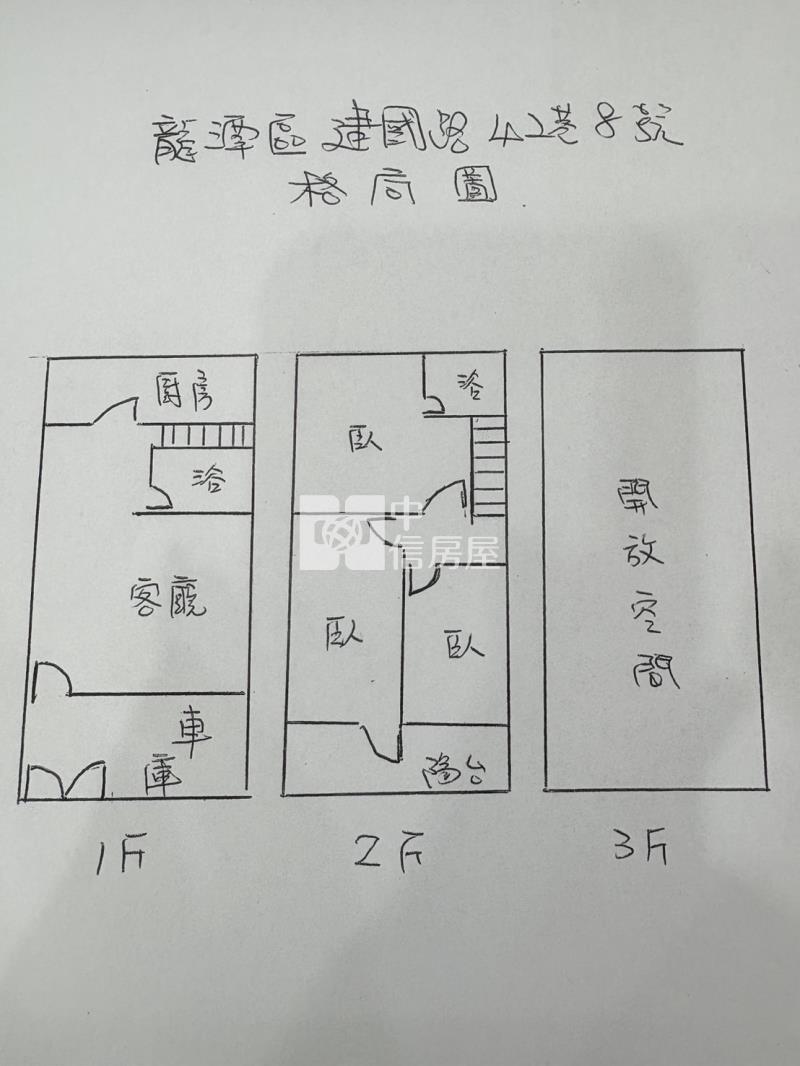 龍潭區建國路42巷8號
格局圖
厨房
浴
客廳
車庫
1斤
浴
臥
臥
臥
陽台
2斤
開放空間
3斤
中
信房屋